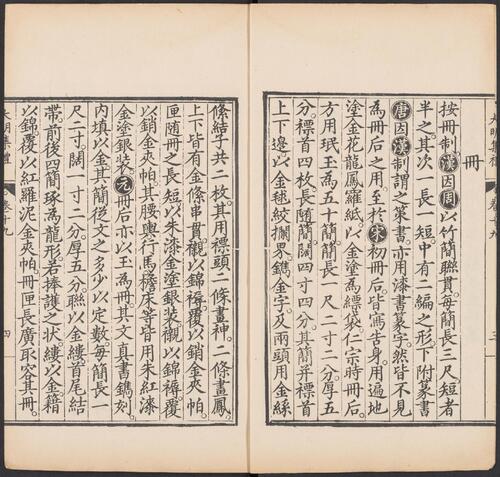 冊
按冊制漢因周以竹簡聯貫每簡長三尺短者
半之其次一長一短中有二編之形下附篆書
唐因漢制謂之策書亦用漆書篆字然皆不見
為冊后之用至於宋初冊后皆寫告身用遍地
塗金花龍鳳羅紙以金塗為標袋仁宗時冊后
方用珉玉為五十簡簡長一尺二寸二分厚五
分標首四枚長隨簡闊四寸四分其簡并標首
上下邊以金毬絞攔界鐫金字及兩頭用金絲
條結子共二枚其用標頭二條畫神二條畫鳳
上下皆有金條串貫襯以錦褥覆以銷金夾帕
匣随冊之長短以朱漆金塗銀装襯以錦褥覆
以銷金夾帕其腰輿行馬檐床等皆用朱紅漆
金塗銀装元冊后亦以玉為冊其文真書鐫刻
内填以金其簡後文之多少以定數每簡長一
尺二寸闊一寸二分厚五分聯以金縷首尾結
帶前後四簡琢為龍形若捧護之状縷以金藉
以錦覆以紅羅泥金夾帕冊匣長廣取容其冊
大明集禮
卷十九
四